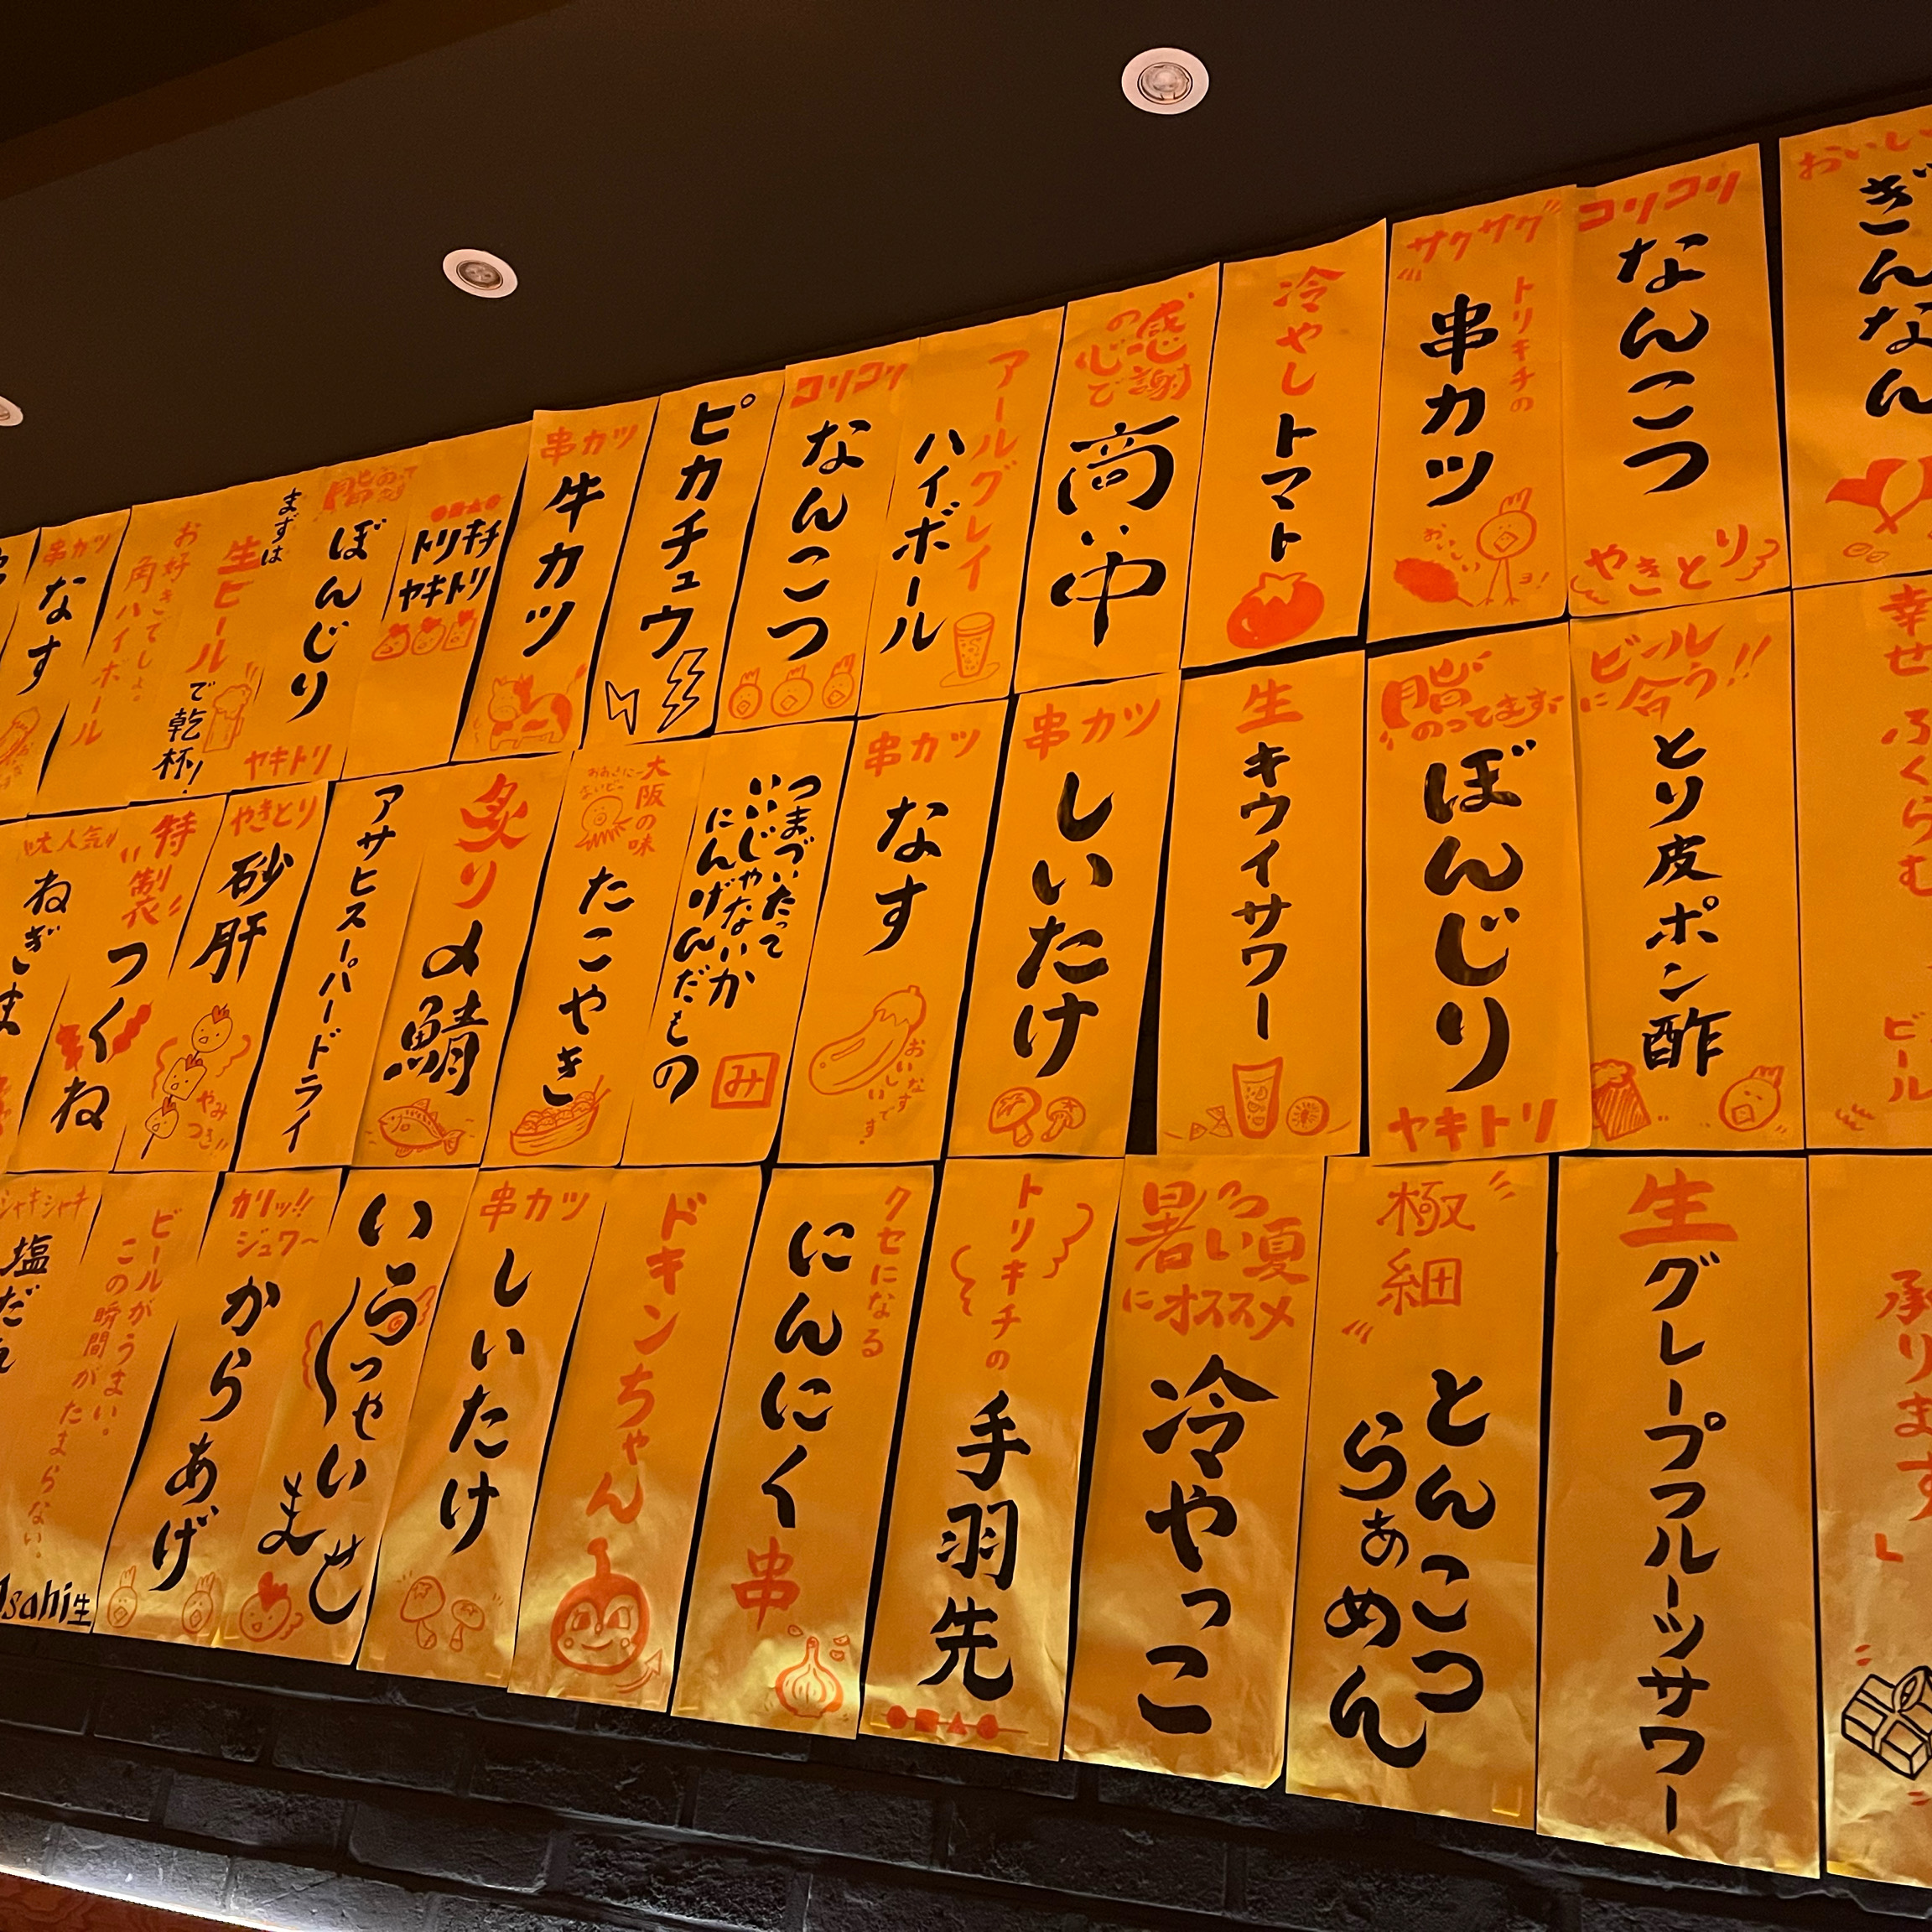 おいし
ぎんなん
コリコリ
なんこつ
やきとり
サクサク
トリキチの
串カツ
おいしいヨ!
冷やし
トマト
感謝
の心で
商い中
アールグレイ
ハイボール
コリコリ
なんこつ
ピカチュウ
串カツ
牛カツ
トリキチ
ヤキトリ
脂のってます
ぼんじり
ヤキトリ
まずは
生ビール
で乾杯!
お好きでしょ。
角ハイボール
串カツ
なす
幸せふくらむ
ビール
ビール
に合う!!
とり皮ポン酢
脂
のってます
ぼんじり
ヤキトリ
生
キウイサワー
串カツ
しいたけ
串カツ
なす
おいしい
なすです!
つまづいたって
いいじゃないか
にんげんだもの
み
大阪の味
おおきに
まいど
たこやき
炙り
〆鯖
アサヒスーパードライ
やきとり
砂肝
やみ
つき!!
特製
つくね
大人気
ねぎま
承ります
生
グレープフルーツサワー
極細
とんこつ
らぁめん
暑い夏
にオススメ
冷やっこ
トリキチの
手羽先
クセになる
にんにく
串
ドキンちゃん
串カツ
しいたけ
いらっしゃいませ
カリッ!!
ジュワ~
からあげ
ビールがうまい。
この瞬間がたまらない。
Asahi生
シャキシャキ
塩だれ